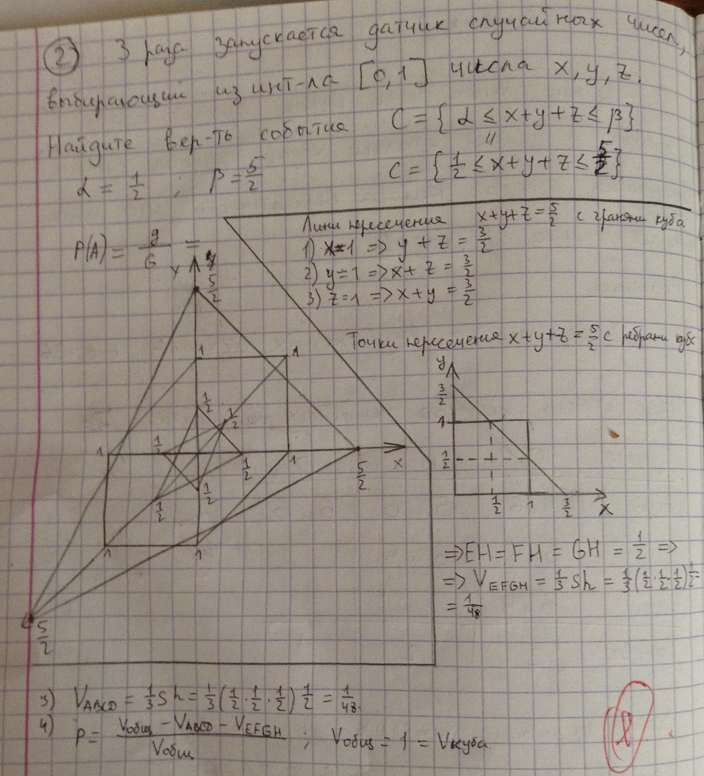 2) 3 раза запускается датчик случайных чисел,
выбирающий из инт-ла [0,1] числа x, y, z.
Найдите вер-ть события C = {α ≤ x+y+z ≤ β}
"
α = 1/2, β = 5/2 C = {1/2 ≤ x+y+z ≤ 5/2}
P(A) = g/G =
Лини пересечения x+y+z = 5/2 с гранями куба
1) x=1 => y+z = 3/2
2) y=1 => x+z = 3/2
3) z=1 => x+y = 3/2
Точки пересечения x+y+z = 5/2 с ребрами куба
y
5/2
1
1
1/2
1/2
1
1/2
1/2
1
x
5/2
1/2
1/2
1
1
5/2
y
3/2
1
1/2
1/2
1
3/2
x
=> EH = FH = GH = 1/2 =>
=> V EFGH = 1/3 Sh = 1/3 (1/2 · 1/2 · 1/2) 1/2 =
= 1/48
3) V ABCD = 1/3 Sh = 1/3 (1/2 · 1/2 · 1/2) 1/2 = 1/48.
4) P = (Vобщ - V ABCD - V EFGH)/Vобщ ; Vобщ = 1 = Vкуба